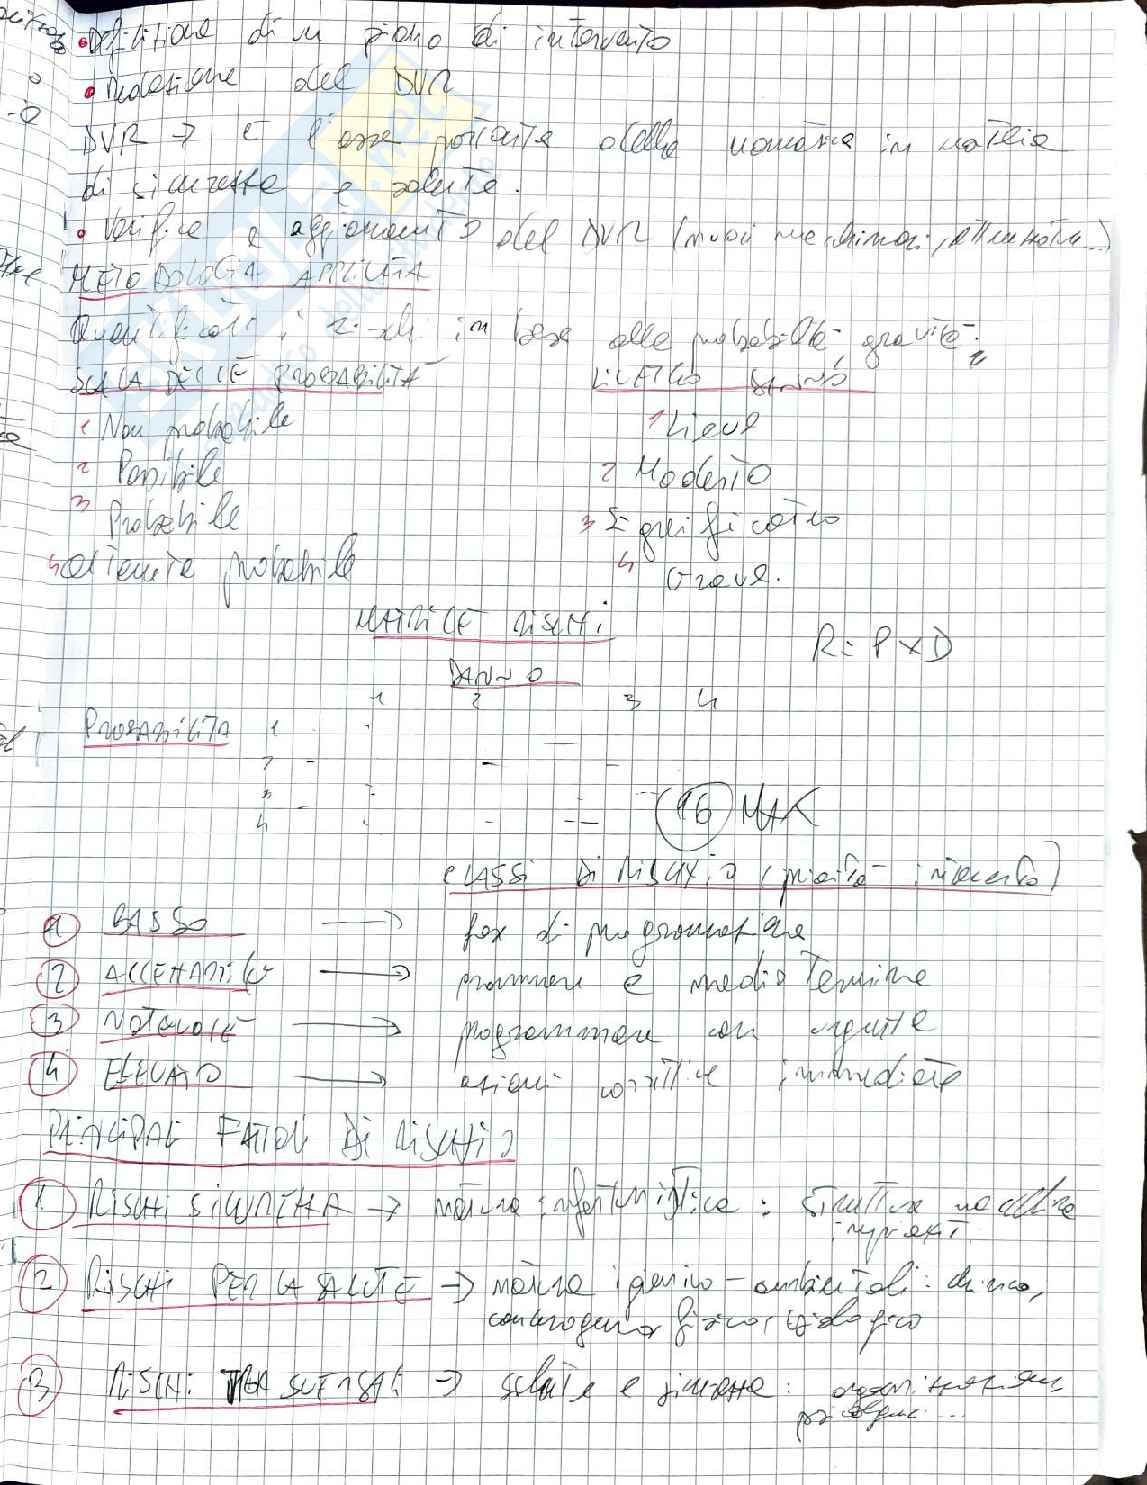 • Definizione di un piano di intervento
• Redazione del DVR
DVR → è l'asse portante della normativa in materia
di sicurezza e salute.
• Verifica e aggiornamento del DVR (nuovi macchinari, attrezzature...)
METODOLOGIA APPLICATA
Quantificati i rischi in base alle probabilità gravità:
SCALA DELLE PROBABILITÀ LIVELLO DANNO
1 Non probabile 1 Lieve
2 Possibile 2 Modesto
3 Probabile 3 Significativo
4 altamente probabile 4 Grave.
MATRICE RISCHI
R = P x D
DANNO
1 2 3 4
PROBABILITÀ 1
2
3
4 16 MAX
CLASSI DI RISCHIO (priorità intervento)
1 BASSO → di programmazione
2 ACCETTABILE → a medio termine
3 NOTEVOLE → programmare con urgenza
4 ELEVATO → azioni correttive immediate
PRINCIPALI FATTORI DI RISCHIO
1. RISCHI SICUREZZA → natura infortunistica: strutture macchine
impianti
2 RISCHI PER LA SALUTE → natura igienico-ambientali: chimico,
cancerogeno fisico, biologico
3 RISCHI TRASVERSALI → salute e sicurezza: organizzazione